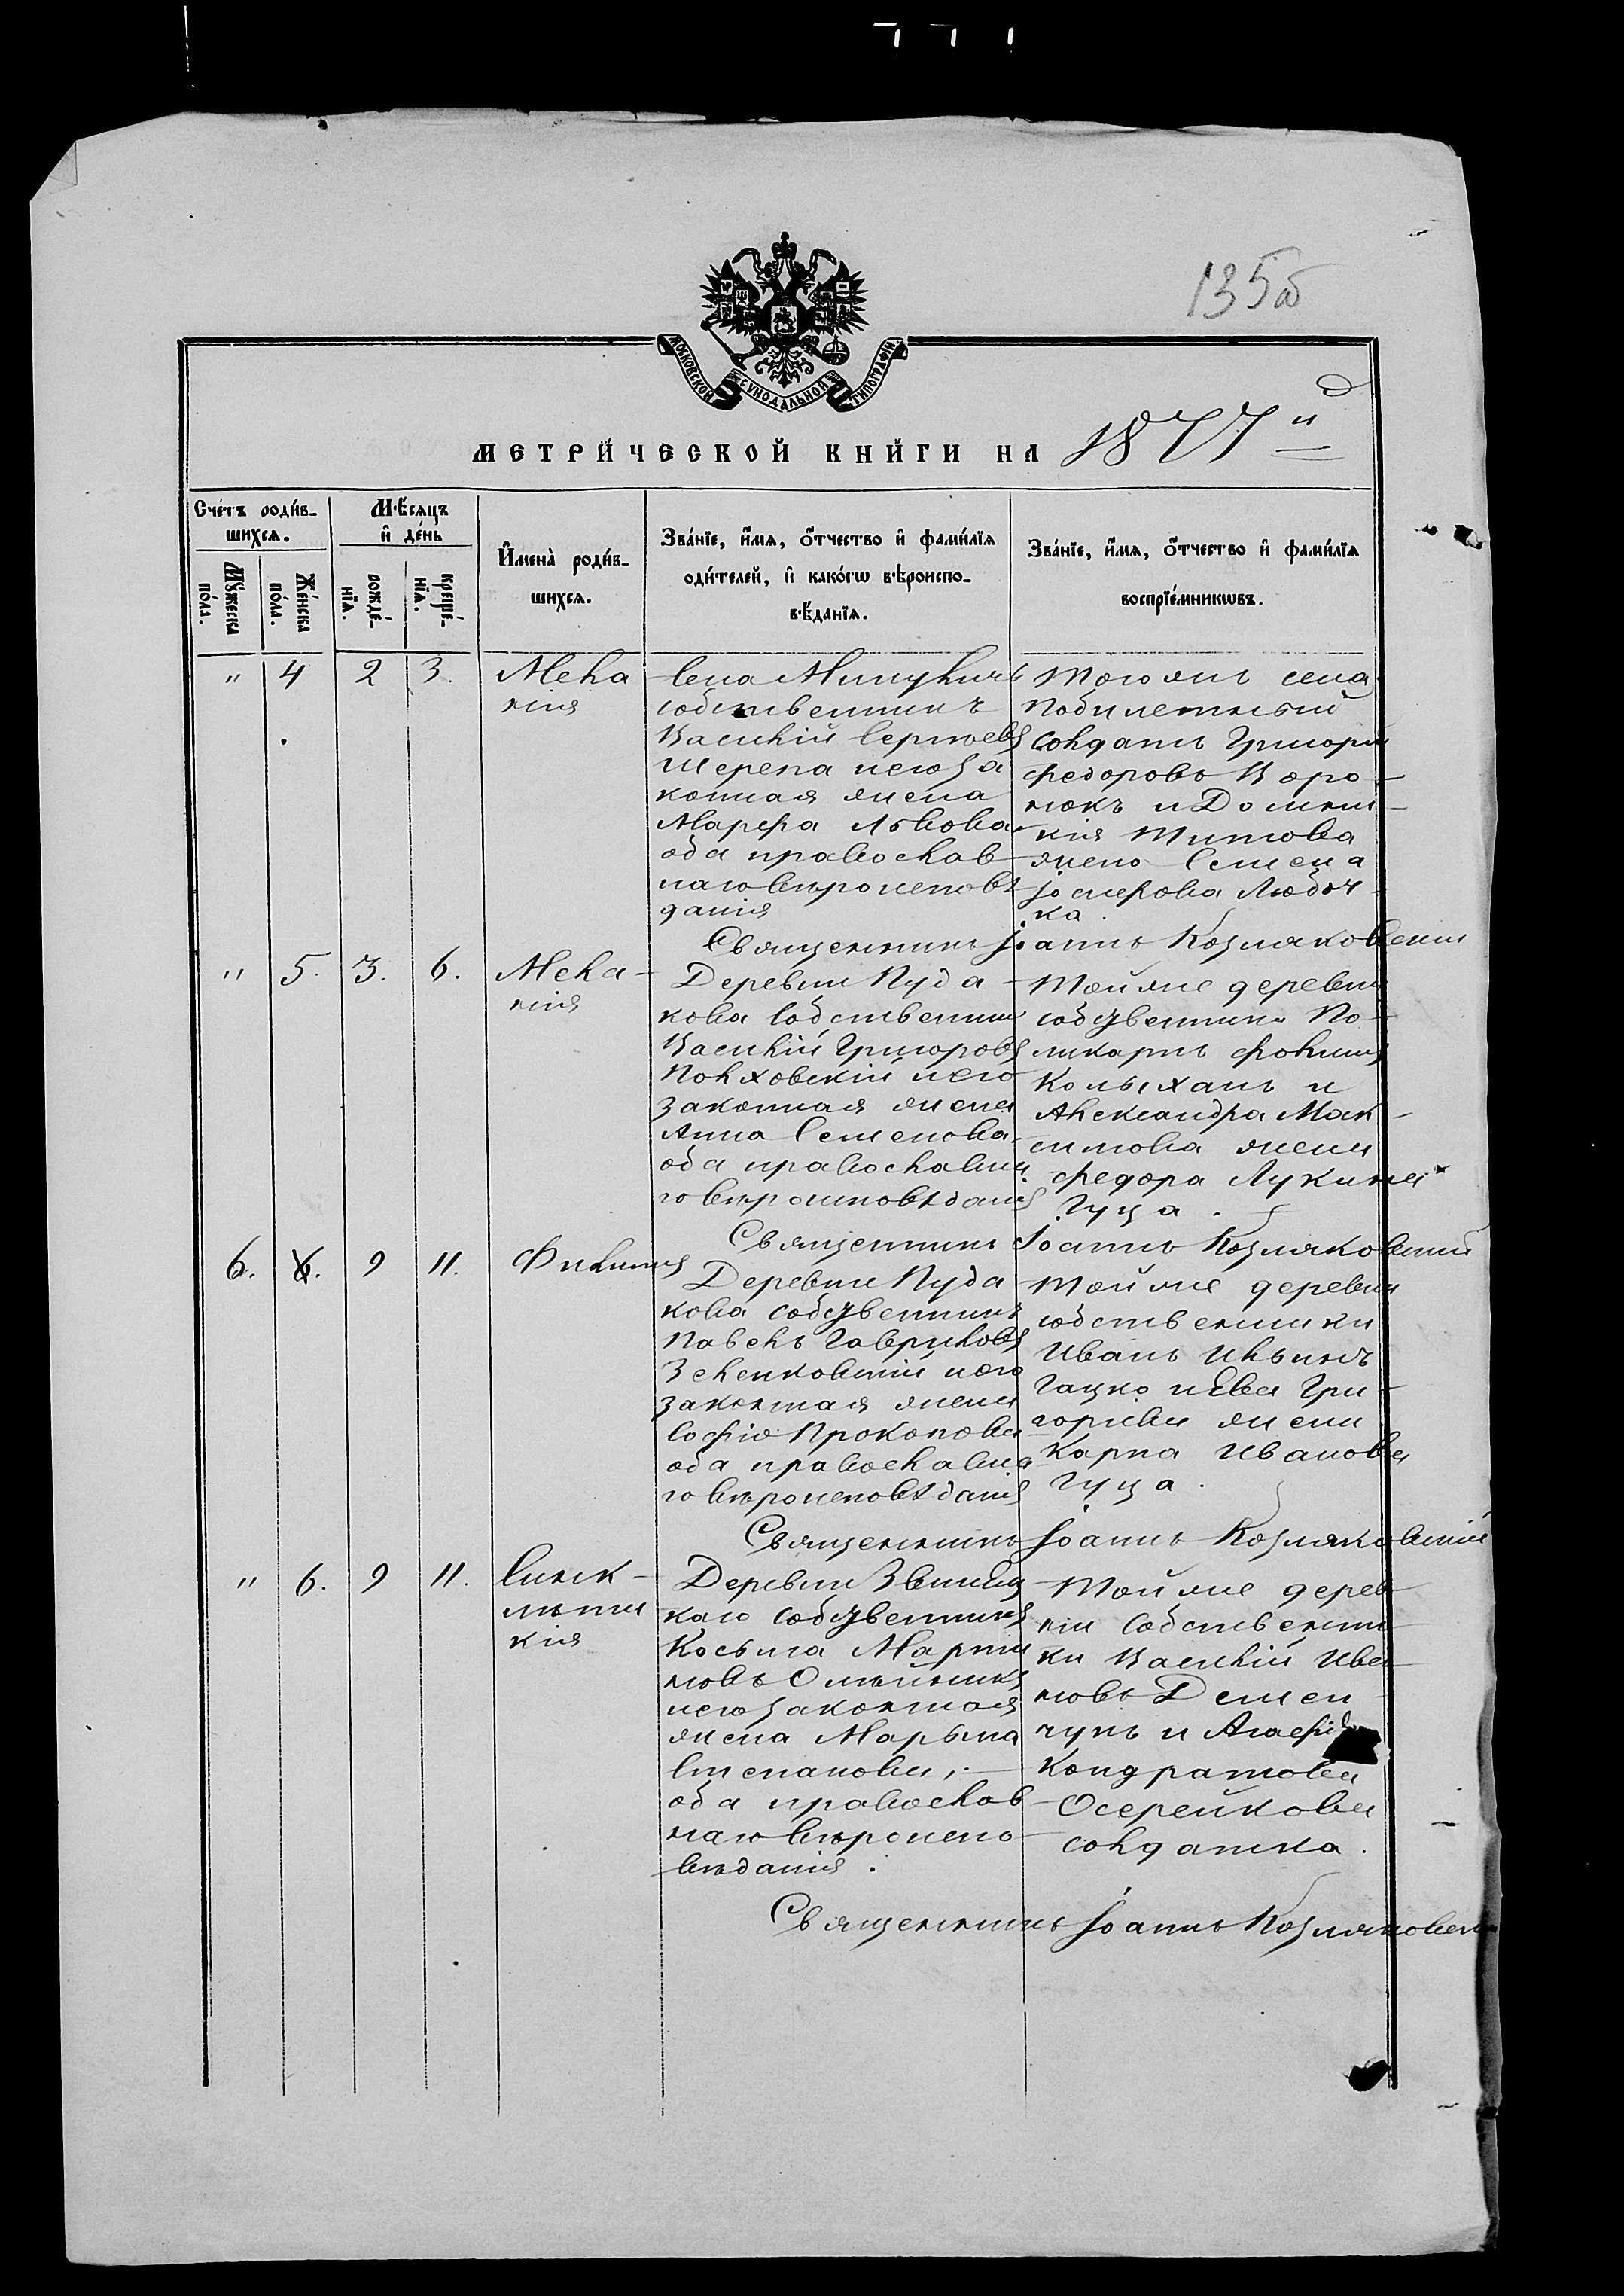 135об
МОСКОВСКОЙ СѴНОДАЛЬНОЙ ТИПОГРАФІИ
МЕТРИ́ЧЕСКОЙ КНИ́ГИ НА 1877 й
Сче́тъ роди́в-
шихсѧ.
Мꙋ́жеска
по́ла.
Же́нска
по́ла.
Мѣ́сѧцъ
и҆ де́нь
рожде́-
нїѧ.
креще́-
нїѧ.
И҆мена̀ роди́в-
шихсѧ.
Зва́нїе, и҆́мѧ, ѻ҆́тчество и҆ фами́лїѧ
оди́телей, и҆ како́гѡ вѣроиспо-
вѣ́данїѧ.
Зва́нїе, и҆́мѧ, ѻ҆́тчество и҆ фами́лїѧ
воспрїе́мникѡвъ.
" 4 2 3.
Мела
нія
Села
собственникъ
Василій Сергѣевъ
Шерепа и его за
конная жена
Марфа Львова
оба православ
наго вѣроисповѣ
данія
Того же села
побилетный
солдатъ Григорій
Федоровъ Воро-
нюкъ и Домни-
кія Титова
жена Семена
Іосифова Любоч-
ка.
Священникъ Іоаннъ Козляковскій
" 5. 3. 6.
Мела-
нія
Деревни Пуда-
кова собственникъ
Василій Григоровъ
Полховскій и его
законная жена
Анна Семенова
оба православна
го вѣроисповѣданія
Той же деревни
собственникъ По-
ликарпъ Фокинъ
Колыханъ и
Александра Мак-
симова жена
Федора Лукина
Гуца.
Священникъ Іоаннъ Козляковскій
6. 6. 9 11.
Филиппъ
Деревни Пуда-
кова собственникъ
Павелъ Гавриловъ
Зеленковскій и его
законная жена
Софія Прокопова
оба православна
го вѣроисповѣданія
Той же деревни
собственники
Иванъ Ильинъ
Гацко и Ева Гри-
горіева жена
Карпа Иванова
Гуца.
Священникъ Іоаннъ Козляковскій
" 6. 9 11.
Синк-
лити
кія
Деревни
каго собственникъ
Косьма Марти
новъ Олейникъ
и его законная
жена Марьяна
Степанова,
оба православ-
наго вѣроиспо-
вѣданія.
Той же дерев
ни собственни
ки Василій Ива
новъ Демен
чукъ и
Кондратова
Осерейкова
солдатка.
Священникъ Іоаннъ Козляковскій